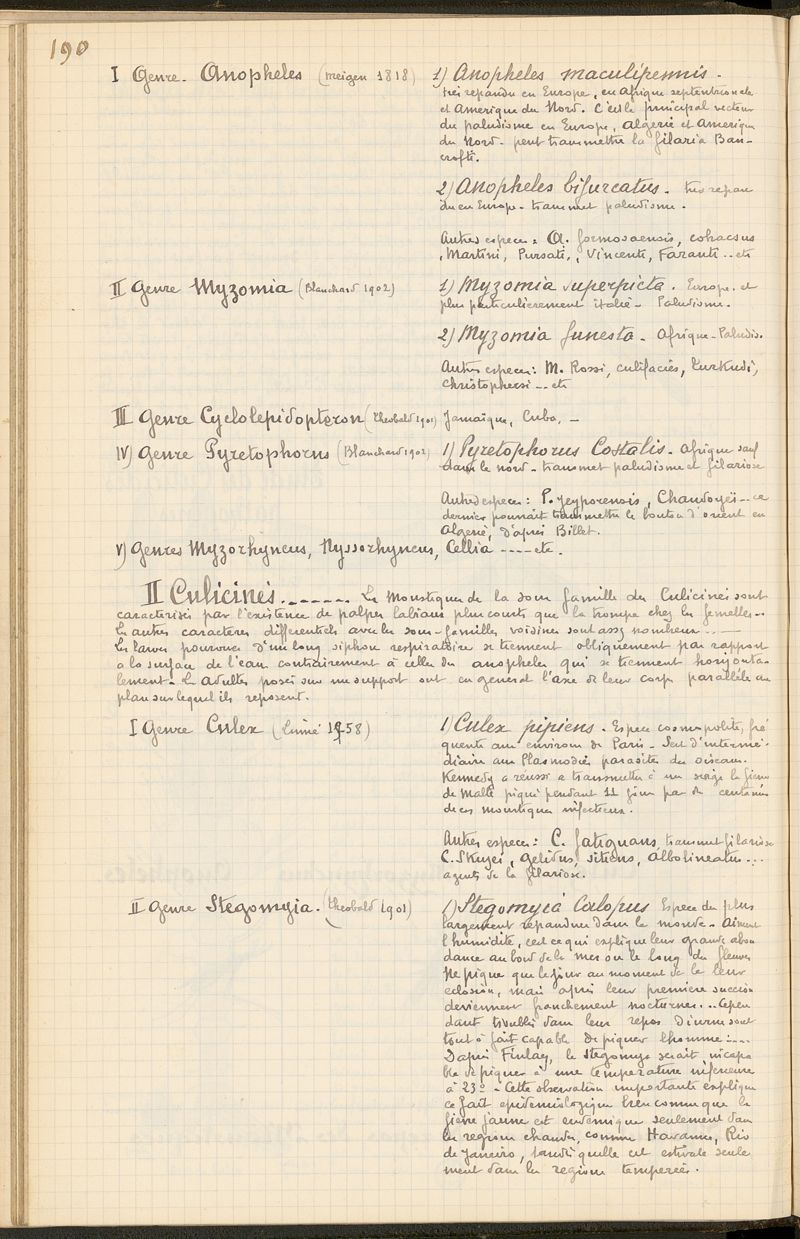 190
I Genre - Anopheles (Meigen 1818)
1) Anopheles maculipennis -
très répandu en Europe, en Afrique septentrionale
et Amerique du Nord. C'est le principal vecteur
du paludisme en Europe, Algerie et Amerique
du Nord - peut transmettre la filaria Ban-
crofti.
2) Anopheles bifurcatus - très répan
du en Europe - transmet paludisme.
Autres especes, A. formosaensis, cohaesus
, Martini, Pursati, Vincenti, Farauti .. etc
II Genre Myzomia (Blanchard 1902)
1) Myzomia superpicta. Europe et
plus particulierement italie - Paludisme.
2) Myzomia funesta - Afrique - Paludis.
Autres especes: M. Rossi, culifacies, Turkudi,
Christophersi -- etc
III Genre Cyclolepidopteron (Theobald 1901) Jamaïque, Cuba, -
IV) Genre Pyretophorus (Blanchard 1902)
1) Pyretophorus Costalis - Afrique sauf
dans le nord - transmet paludisme et filariose
Autres especes: P. jeyporensis, Chaudoyei -- ce
dernier pourrait transmettre le bouton d'orient en
Algerie, d'après Billet.
V) Genres Myzorhyncus, Nyssorhyncus, Cellia ---- etc.
II Culicinés....... Les Moustiques de la sous famille des Culicinés sont
caracterisés par l'existence de palpes labiaux plus courts que la trompe chez les femelles..
Les autres caracteres differentiels avec les sous-familles voisines sont assez nombreux ...
Les larves pourvues d'un long siphon respiratoire se tiennent obliquement par rapport
a la surface de l'eau contrairement à celles des anopheles qui se tiennent horizonta-
lement - Les adultes posés sur un support ont en general l'axe de leur corps parallèle au
plan sur lequel ils reposent.
I Genre Culex (Linné 1758)
1) Culex pipiens - Espece cosmopolite, fré
quente aux environs de Paris - Sert d'intermé-
diaire aux Plasmodies parasites des oiseaux.
Kennedy a réussi a transmettre à un singe la fièvre
de Malte piqué pendant 11 jours par des centaines
de ces moustiques infectieux.
Autres especes: C. fatiguans, transmet filariose
C. Skusei, gelidus, sitiens, albolineatus...
agents de la filariose.
II Genre Stegomyia. (Theobald 1901)
1) Stegomyia Calopus Espece des plus
largement repandue dans le monde - Aiment
l'humidité, c'est ce qui explique leur grande abon
dance au bord de la mer ou le long des fleuves
Ne pique que le jour au moment de la leur
eclosion, mais après leur premiere succion
deviennent franchement nocturnes... Cepen
dant troublés dans leur repos diurne sont
tout à fait capable de piquer l'homme:....
D'après Finlay, le Stegomya serait incapa
ble de piquer à une temperature inferieure
à 23° - Cette observation importante explique
ce fait epidemiologique bien connu que la
fièvre jaune est endemique seulement dans
les regions chaudes, comme Havanne, Rio
de Janeiro, tandis quelle est estivale seule
ment dans les regions temperées.